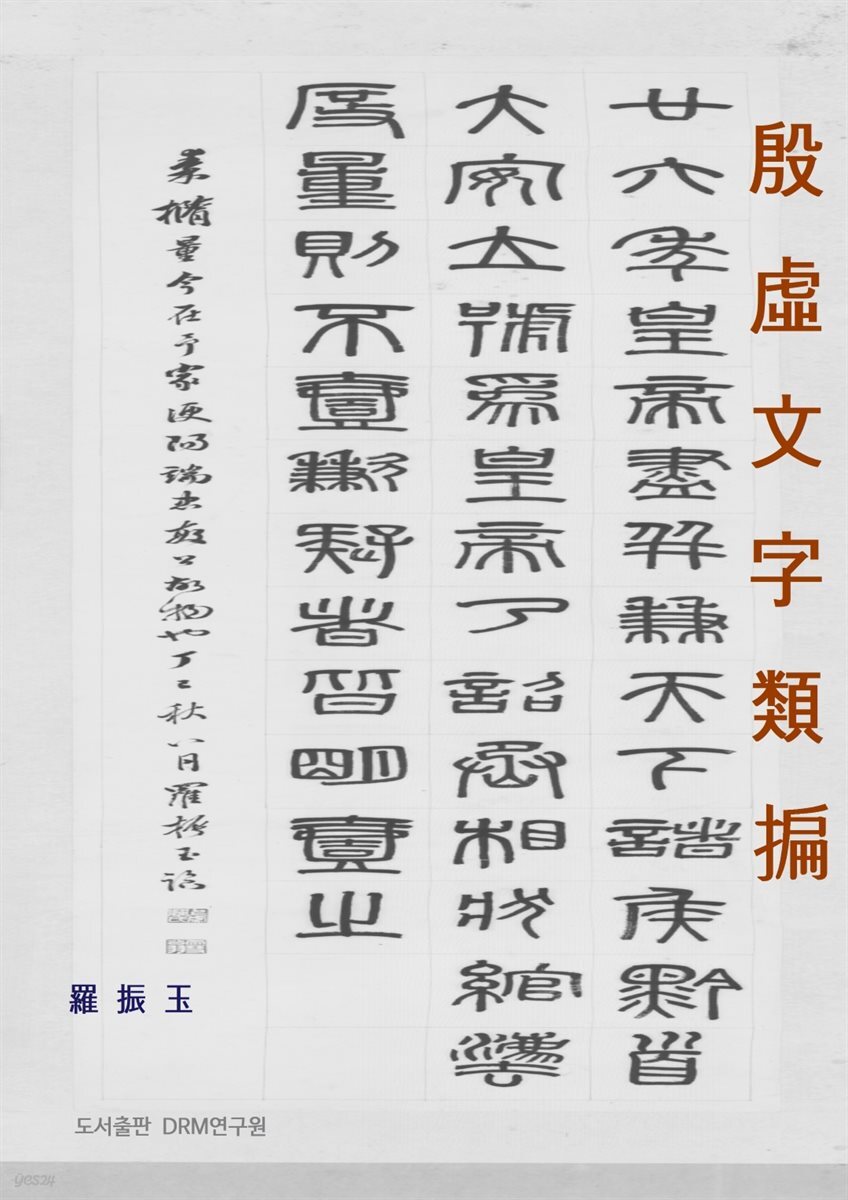 殷虛文字類揙
廿六年皇帝盡并兼天下諸侯黔首
大安立號爲皇帝乃詔丞相狀綰灋
度量則不壹歉疑者皆明壹之
秦橢量今在予家浭陽端忠敏公故物也丁秋八月羅振玉臨
羅振玉
도서출판 DRM연구원
yes24